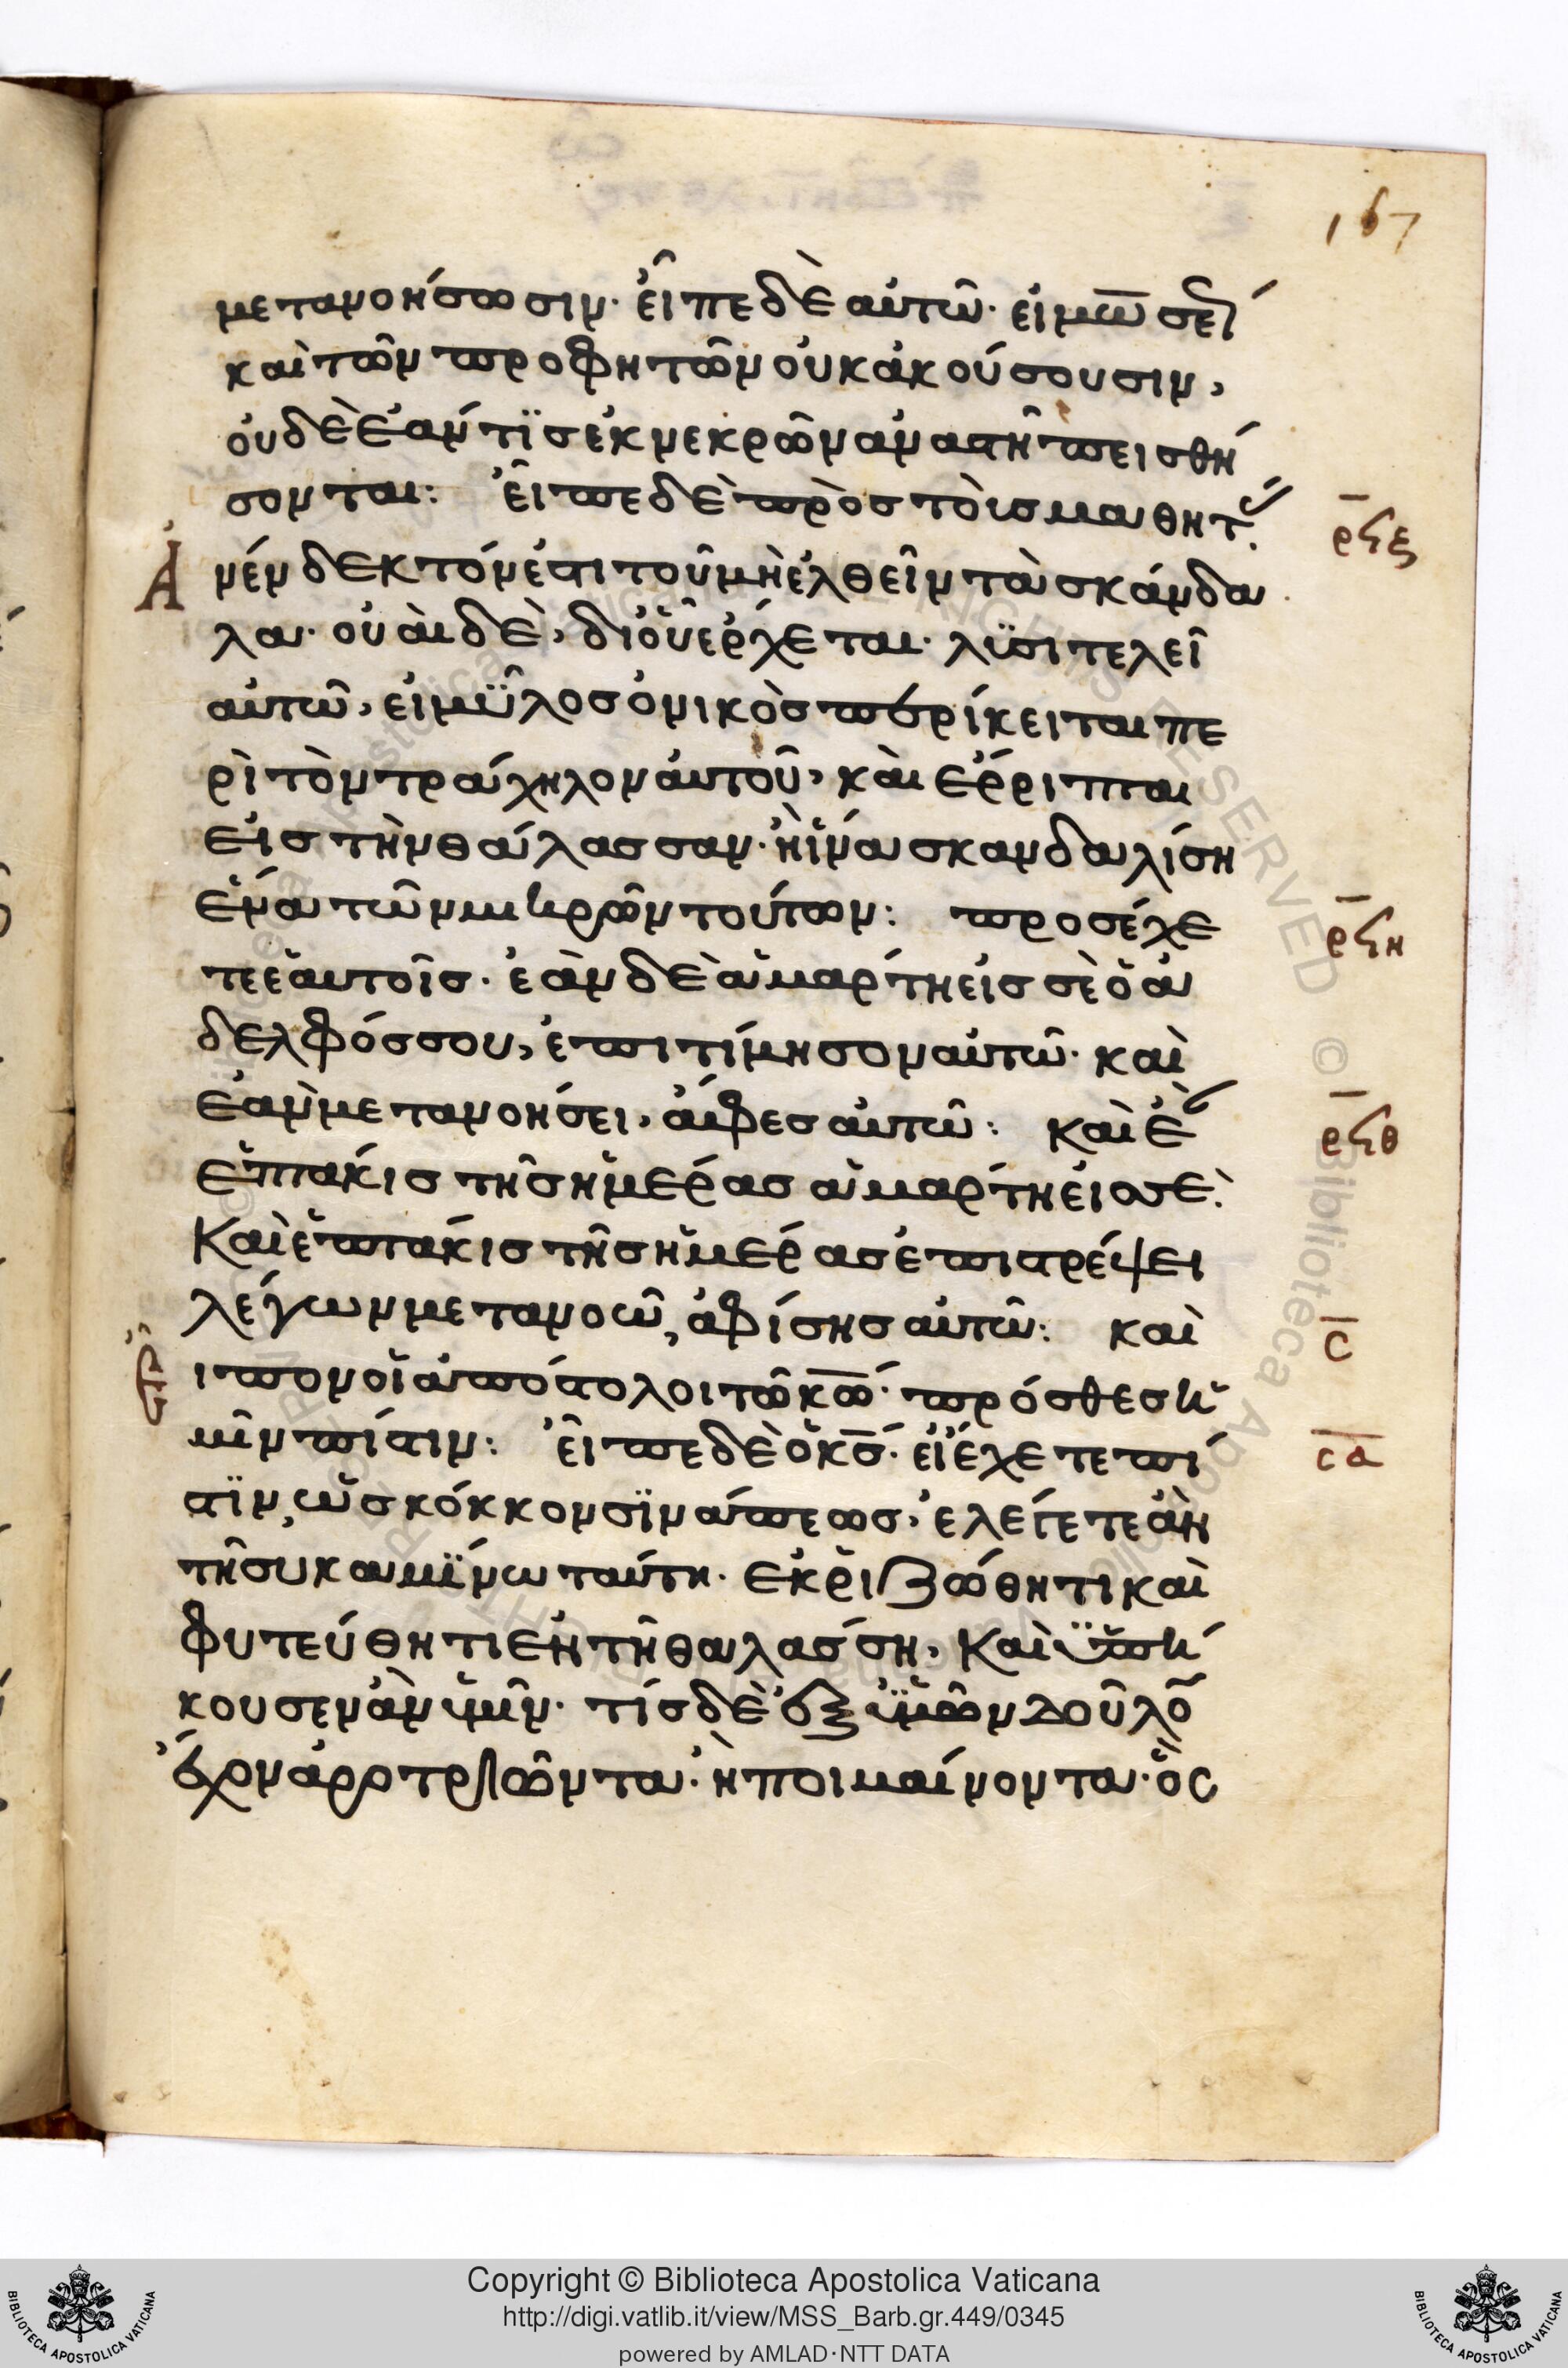 167
μετανοήσωσιν· εἶπε δὲ αὐτῶ· εἰ μω̅σέ
καὶ τῶν προφητῶν οὐκ ἀκούσουσιν,
οὐδὲ ἐάν τϊς ἐκ νεκρῶν ἀναστῆ πεισθή
σονται: εἶπε δὲ πρὸς τοὶς μαθητ
ρϟζ
Ἀνένδεκτόν ἐστι τοῦ μὴ ἐλθεῖν τὰ σκάνδα
λα· οὐαὶ δὲ, δι οὗ ἔρχεται· λϋσιτελεῖ
αὐτῶ, εἰ μῦλος ὀνικὸς περίκειται πε
ρὶ τὸν τράχηλον αὐτοῦ, καὶ ἔρριπται
εἰς τὴν θάλασσαν· ἢ ἵνα σκανδαλίση
ἕνα τῶν μικρῶν τούτων: προσέχε
ρϟη
τε ἑαυτοῖς· ἐὰν δὲ ἁμάρτη εἰς σὲ ὁ ἀ
δελφός σου, ἐπιτίμησον αὐτῶ· καὶ
ἐὰν μετανοήσει, ἄφες αὐτῶ: καὶ ἐ
ρϟθ
ἑπτάκις τῆς ἡμέρας ἁμάρτη εἰς σὲ·
Καὶ ἑπτάκις τῆς ἡμέρας ἐπιστρέψει
λέγων μετανοῶ, ἀφίσης αὐτῶ: καὶ
ϲ
ιπον οἱ ἀπόστολοι τῶ κ̅ω̅· πρόσθες ἡ
μῖν πίστιν: εἶπε δὲ ὁ κ̅ς̅· εἰ ἔχετε πί
ϲα
στϊν, ὡς κόκκον σϊνάπεως, ἐλέγετε ἂν
τῆ συκαμϊνω ταύτη· ἐκριζώθητι καὶ
φυτεύθητι ἐν τῆ θαλάσση, Καὶ ὑπή
κουσεν ἂν ὑμῖν· τίς δὲ ἐξ ὑμῶν δοῦλο
ἔχων ἀροτριῶντα· ἢ ποιμαίνοντα· ὃς
Copyright © Biblioteca Apostolica Vaticana
http://digi.vatlib.it/view/MSS_Barb.gr.449/0345
powered by AMLAD·NTT DATA
BIBLIOTECA APOSTOLICA VATICANA
BIBLIOTECA APOSTOLICA VATICANA